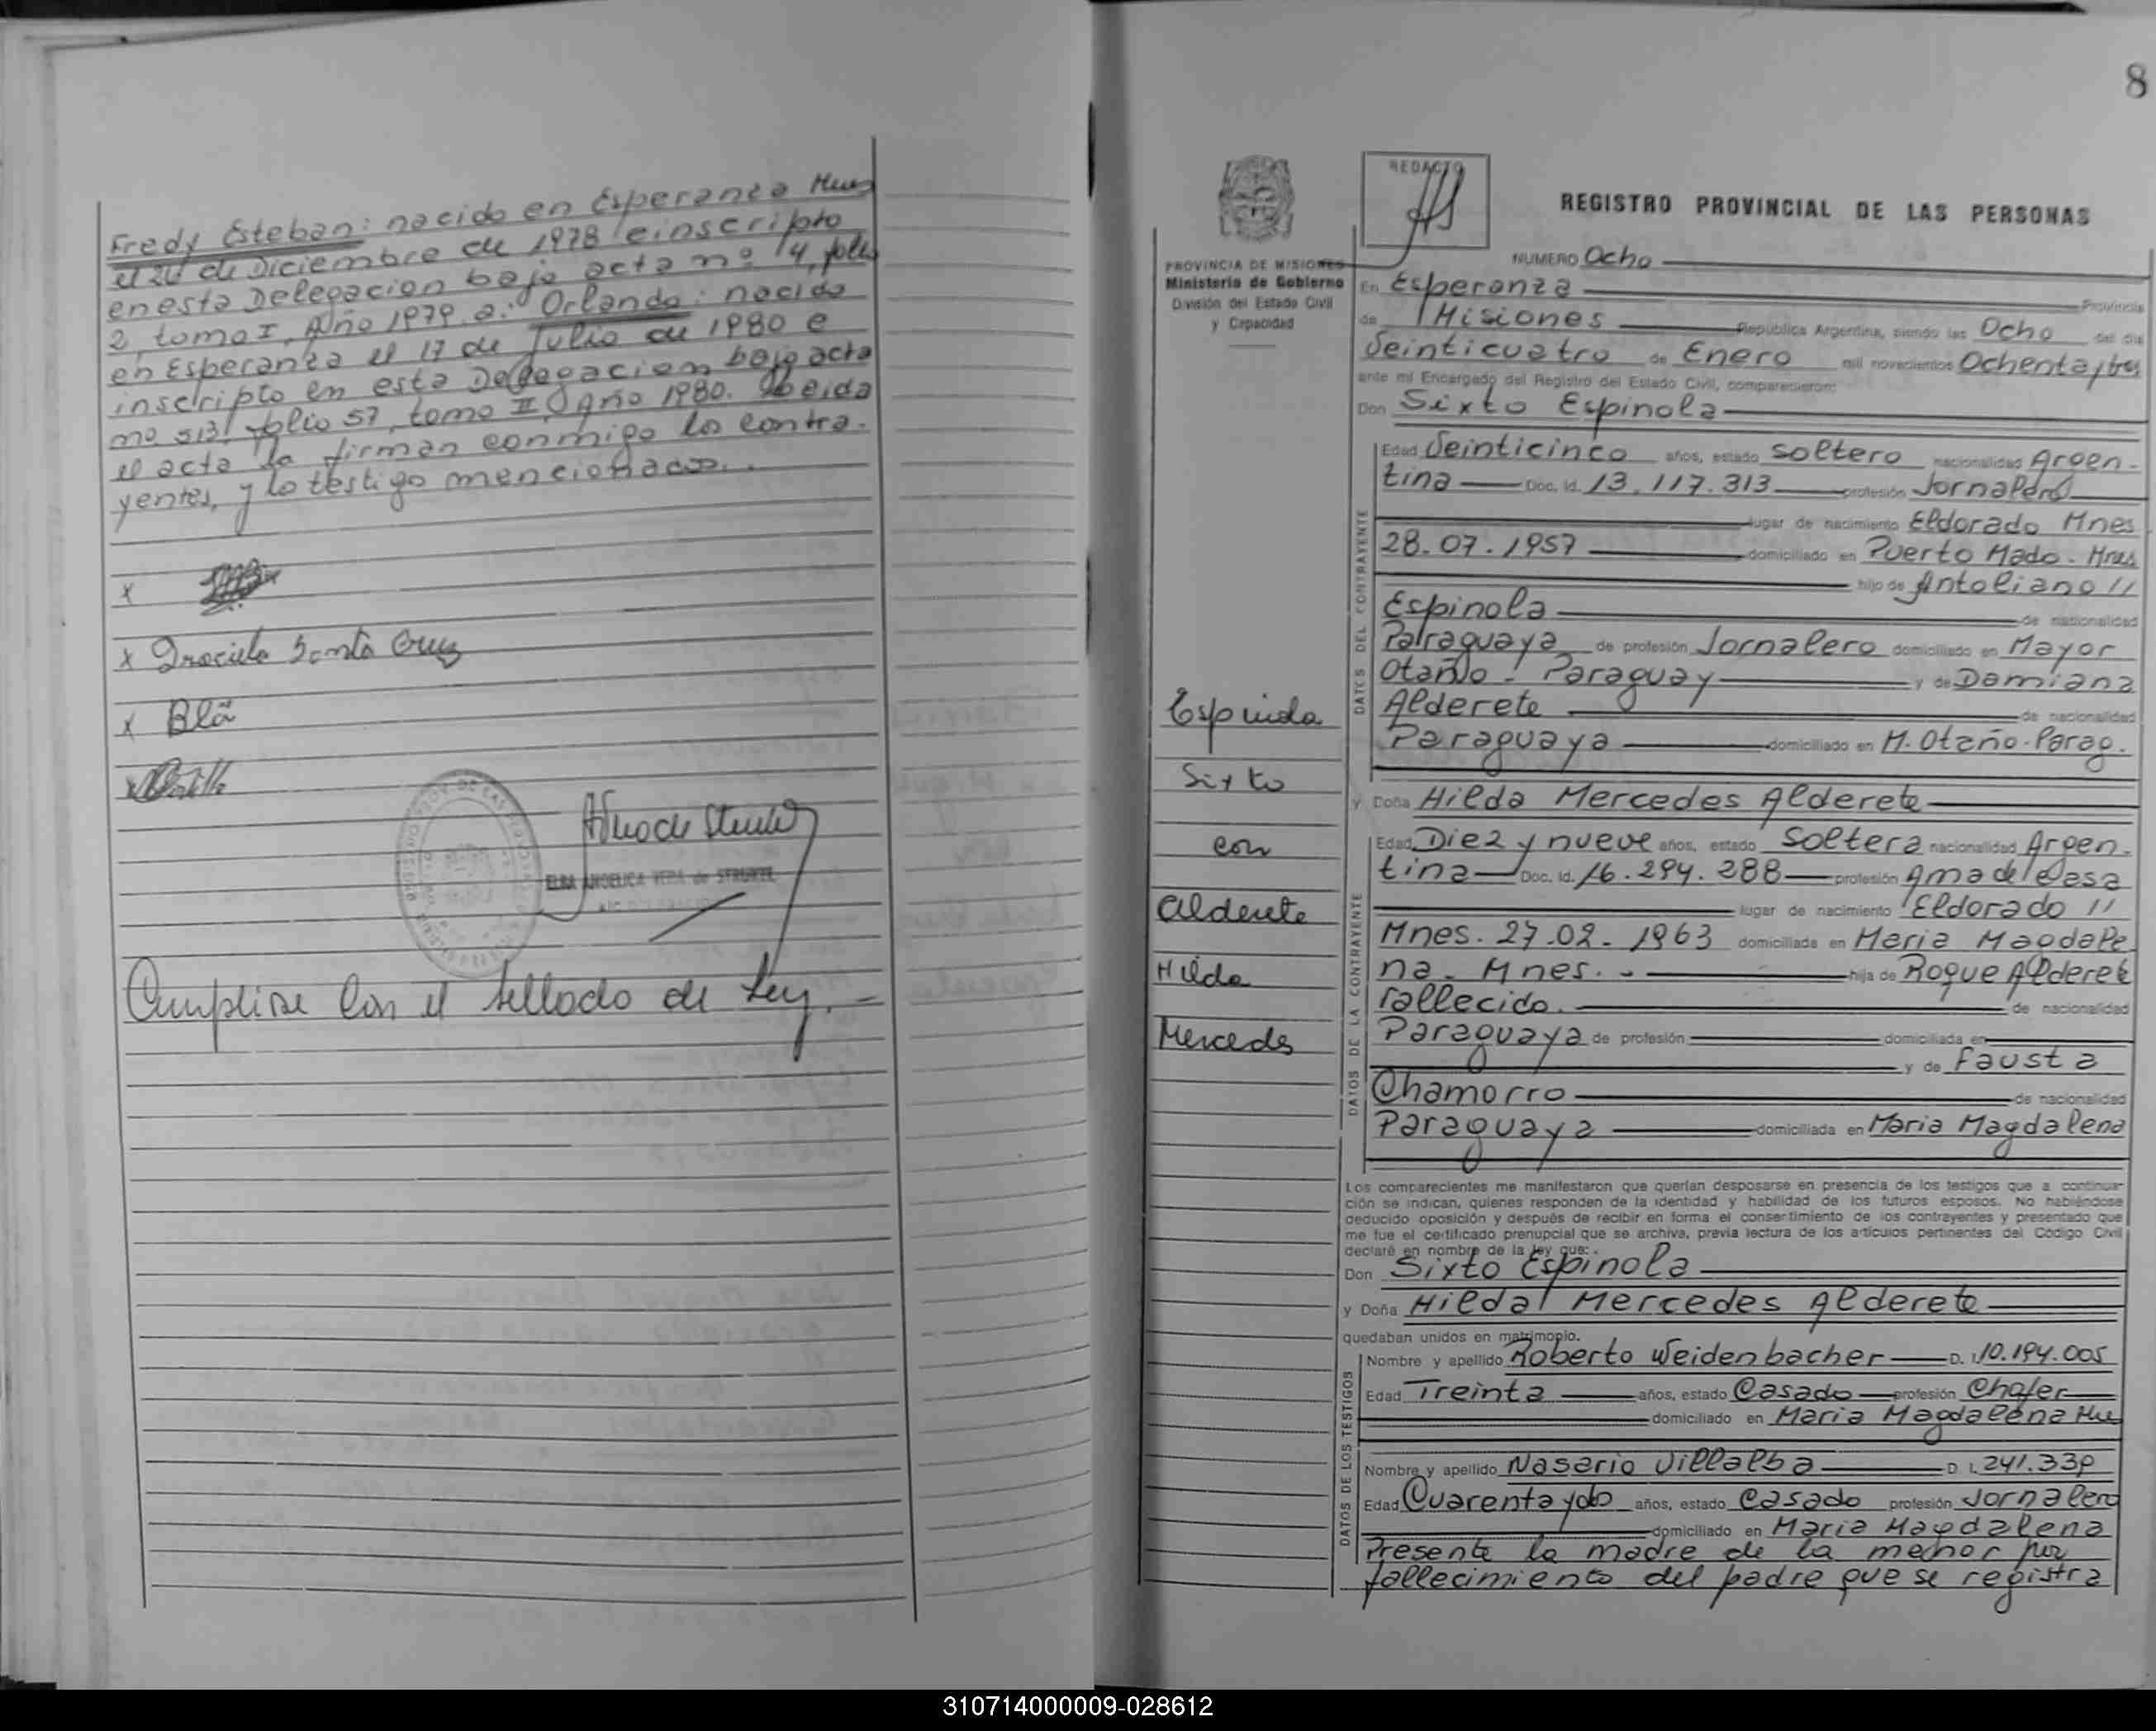 Fredy Esteban: nacido en Esperanza Mnes
el 26 de Diciembre de 1978 e inscripto
en esta Delegacion bajo acta nº 14, folio
2, tomo I, Año 1979. a: Orlando: nacido
en Esperanza el 17 de Julio de 1980 e
inscripto en esta Delegacion bajo acta
nº 513, folio 57, tomo II, Año 1980. Leida
el acta la firman conmigo los contra-
yentes, y lo testigo mencionados.
x
x Graciela Santa Cruz
x Bla
x
ELBA ANGELICA VERA de STRUBTE
Cumplise con el sellado de Ley. -
8
REDACTO
REGISTRO PROVINCIAL DE LAS PERSONAS
PROVINCIA DE MISIONES
Ministerio de Gobierno
División del Estado Civil
y Capacidad
NUMERO Ocho
En Esperanza Provincia
de Misiones República Argentina, siendo las Ocho del día
Veinticuatro de Enero mil novecientos Ochenta y tres
ante mi Encargado del Registro del Estado Civil, comparecieron:
Don Sixto Espinola
DATOS DEL CONTRAYENTE
Edad Veinticinco años, estado soltero nacionalidad Argen-
tina Doc. Id. 13.117.313 profesión Jornalero
lugar de nacimiento Eldorado Mnes
28.07.1957 domiciliado en Puerto Mado - Mnes
hijo de Antoliano //
Espinola de nacionalidad
Paraguaya de profesión Jornalero domiciliado en Mayor
Otaño - Paraguay y de Damiana
Alderete de nacionalidad
Paraguaya domiciliado en M. Otaño - Parag.
Espinola
Sixto
con
Alderete
Hilda
Mercedes
y Doña Hilda Mercedes Alderete
DATOS DE LA CONTRAYENTE
Edad Diez y nueve años, estado Soltera nacionalidad Argen-
tina Doc. Id. 16.294.288 profesión Ama de Casa
lugar de nacimiento Eldorado //
Mnes. 27.02.1963 domiciliada en Maria Magdale
na - Mnes. - hija de Roque Alderete
fallecido. de nacionalidad
Paraguaya de profesión domiciliada en
y de Fausta
Chamorro de nacionalidad
Paraguaya domiciliada en Maria Magdalena
Los comparecientes me manifestaron que querían desposarse en presencia de los testigos que a continua-
ción se indican, quienes responden de la identidad y habilidad de los futuros esposos. No habiéndose
deducido oposición y después de recibir en forma el consertimiento de los contrayentes y presentado que
me fue el certificado prenupcial que se archiva, previa lectura de los artículos pertinentes del Código Civil
declaré en nombre de la ley que:
Don Sixto Espinola
y Doña Hilda Mercedes Alderete
quedaban unidos en matrimonio.
DATOS DE LOS TESTIGOS
Nombre y apellido Roberto Weidenbacher D. I. 10.194.005
Edad Treinta años, estado Casado profesión Chofer
domiciliado en Maria Magdalena Mnes
Nombre y apellido Nasario Villalba D. I. 241.339
Edad Cuarenta y dos años, estado Casado profesión Jornalero
domiciliado en Maria Magdalena
Presente la madre de la menor por
fallecimiento del padre que se registra
310714000009-028612